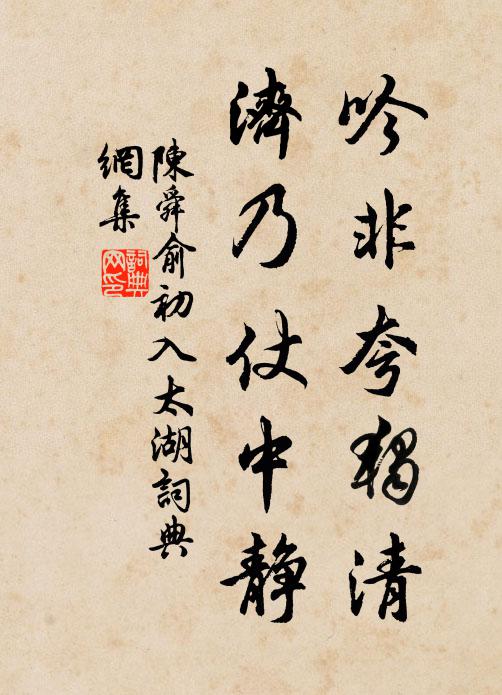 吟非夸獨清
濟乃仗中静
陳舜俞初入太湖詞典
網集
詞典
网印